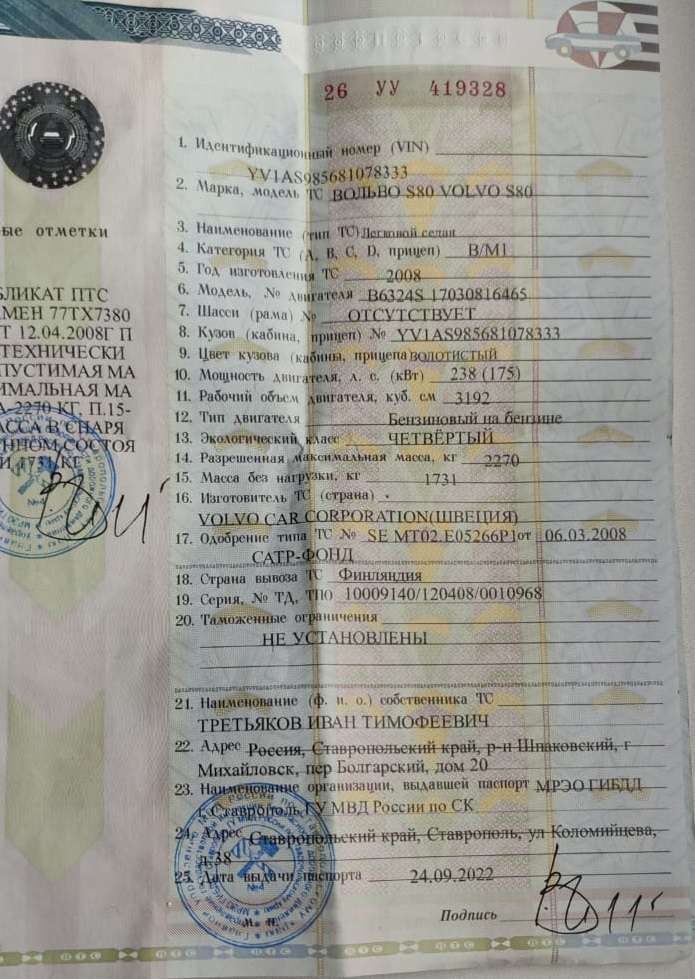 26 УУ 419328
1. Идентификационный номер (VIN)
YV1AS985681078333
2. Марка, модель ТС ВОЛЬВО S80 VOLVO S80
3. Наименование (тип ТС) Легковой седан
4. Категория ТС (A, B, C, D, прицеп) B/M1
5. Год изготовления ТС 2008
6. Модель, № двигателя B6324S 17030816465
7. Шасси (рама) № ОТСУТСТВУЕТ
8. Кузов (кабина, прицеп) № YV1AS985681078333
9. Цвет кузова (кабины, прицепа) ЗОЛОТИСТЫЙ
10. Мощность двигателя, л. с. (кВт) 238 (175)
11. Рабочий объем двигателя, куб. см 3192
12. Тип двигателя Бензиновый на бензине
13. Экологический класс ЧЕТВЁРТЫЙ
14. Разрешенная максимальная масса, кг 2270
15. Масса без нагрузки, кг 1731
16. Изготовитель ТС (страна)
VOLVO CAR CORPORATION(ШВЕЦИЯ)
17. Одобрение типа ТС № SE MT02.E05266P1 от 06.03.2008
САТР-ФОНД
18. Страна вывоза ТС Финляндия
19. Серия, № ТД, ТПО 10009140/120408/0010968
20. Таможенные ограничения
НЕ УСТАНОВЛЕНЫ
21. Наименование (ф. и. о.) собственника ТС
ТРЕТЬЯКОВ ИВАН ТИМОФЕЕВИЧ
22. Адрес Россия, Ставропольский край, р-н Шпаковский, г
Михайловск, пер Болгарский, дом 20
23. Наименование организации, выдавшей паспорт МРЭО ГИБДД
г. Ставрополь ГУ МВД России по СК
24. Адрес Ставропольский край, Ставрополь, ул Коломийцева,
д.38
25. Дата выдачи паспорта 24.09.2022
М. П.
Подпись
ые отметки
БЛИКАТ ПТС
МЕН 77ТХ7380
Т 12.04.2008Г П
ТЕХНИЧЕСКИ
ПУСТИМАЯ МА
ИМАЛЬНАЯ МА
А-2270 КГ, П.15-
АССА В СНАРЯ
ННОМ СОСТОЯ
И 1731 КГ